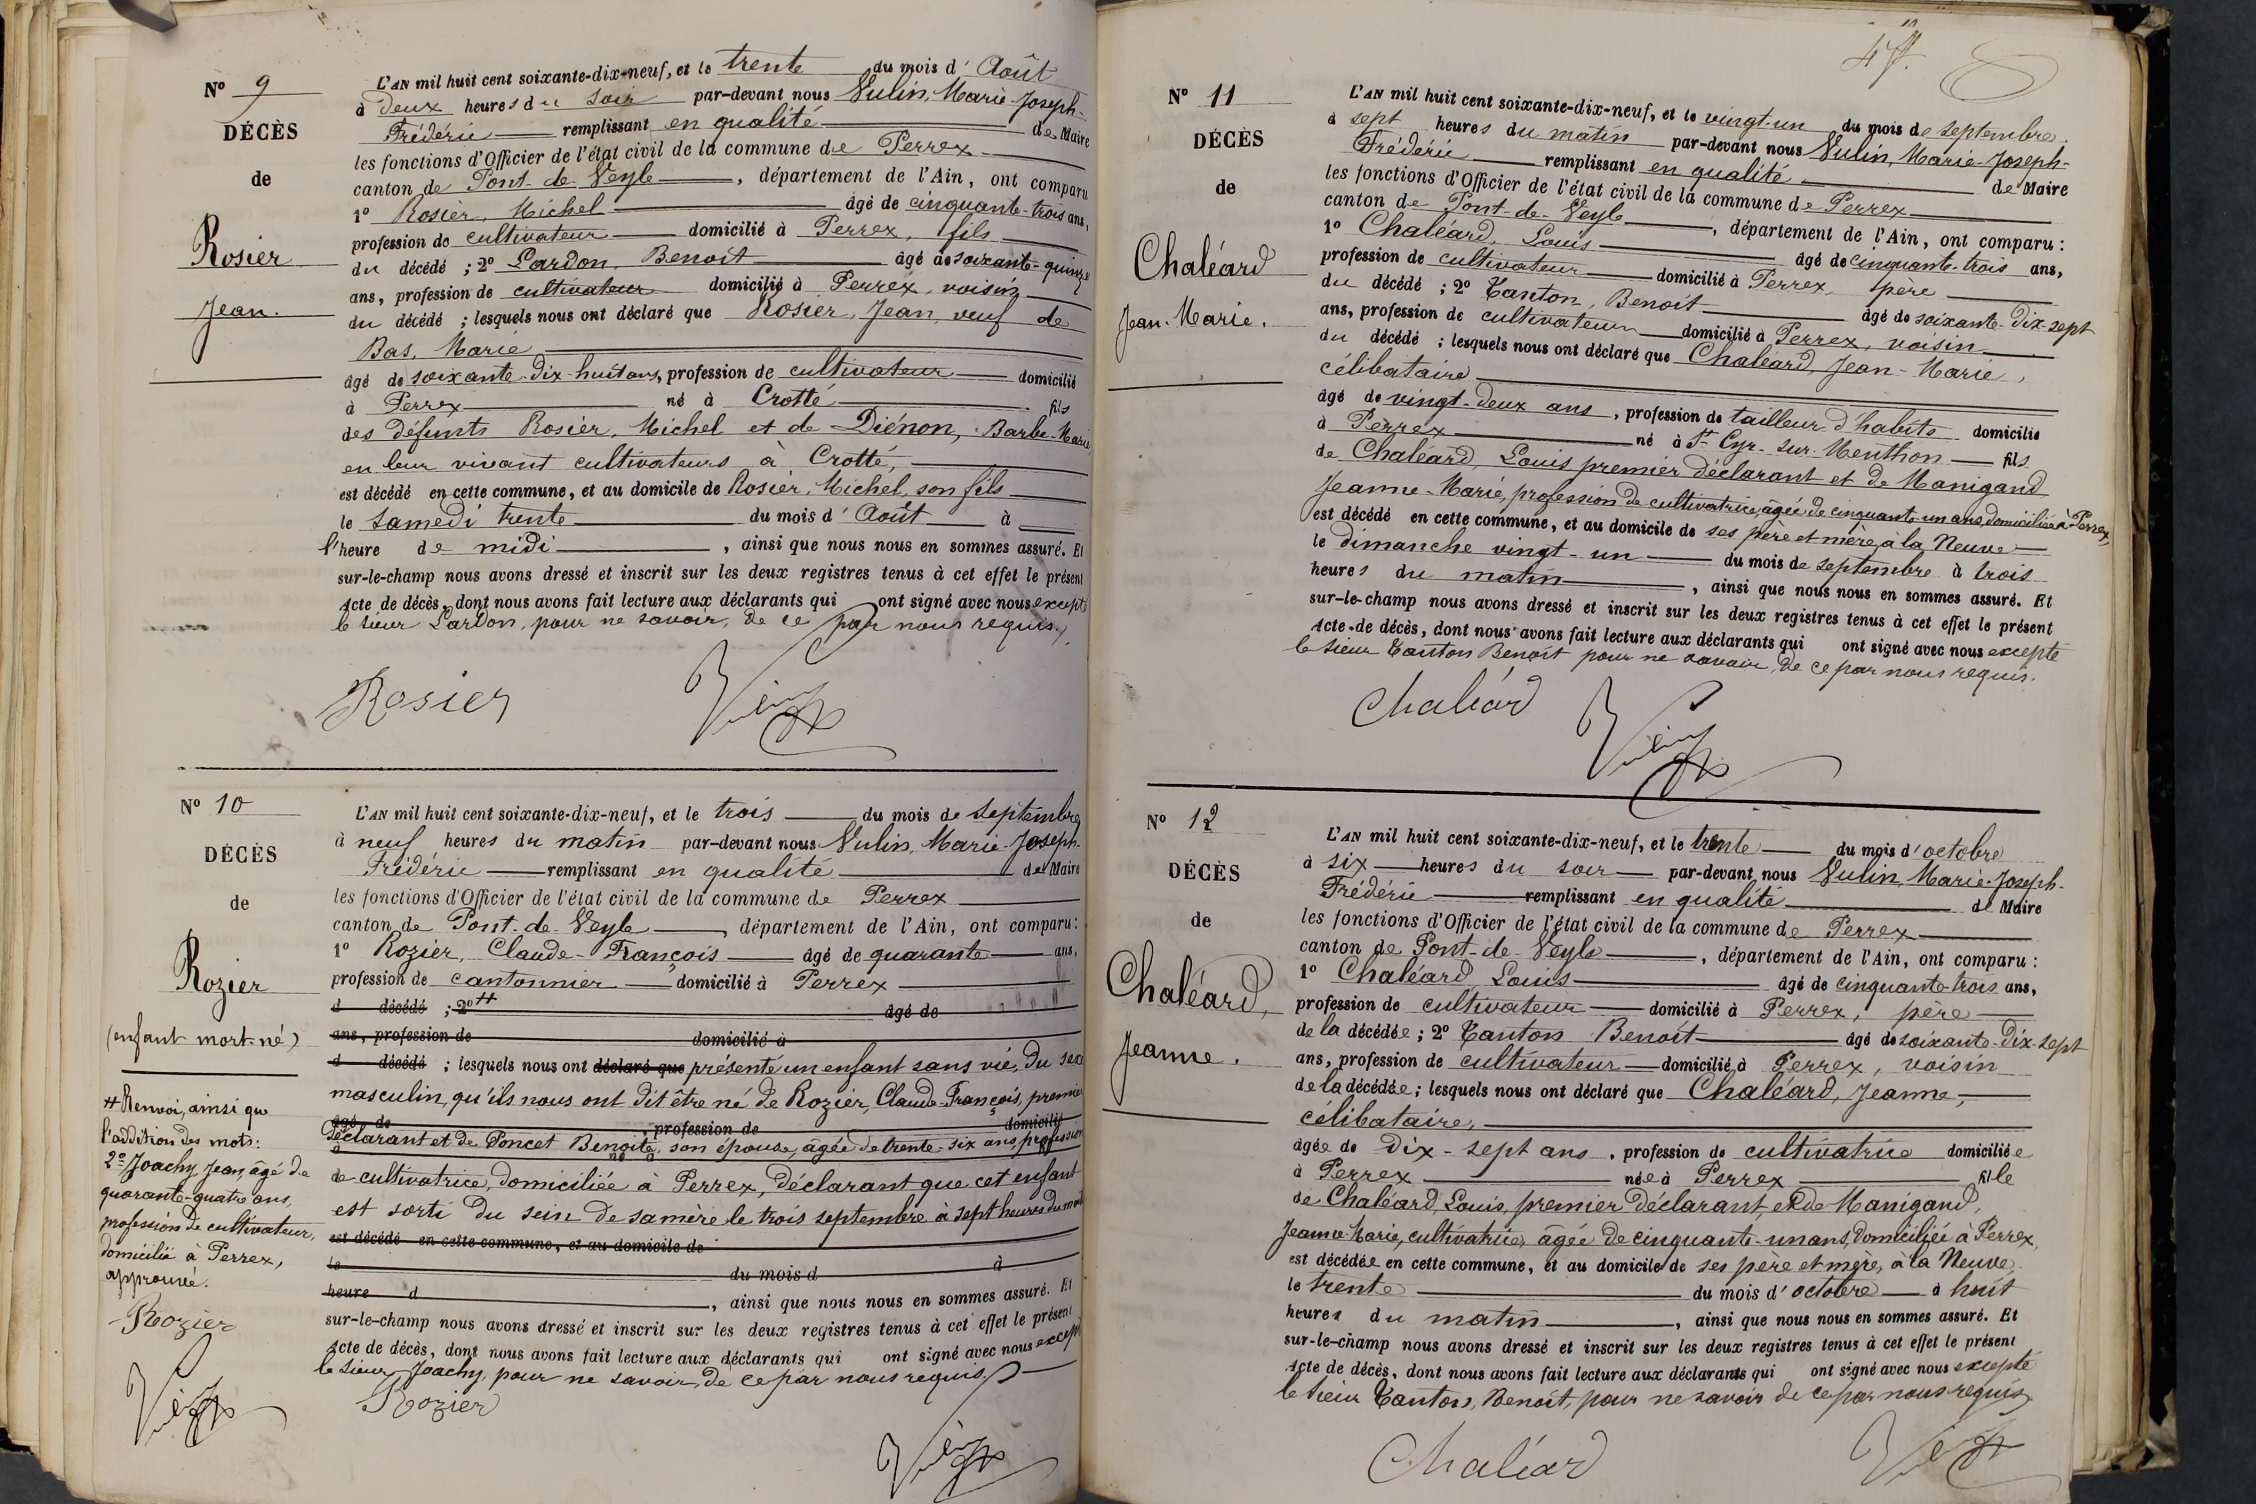 Nº 9
DÉCÈS
de
Rosier
Jean.
L'AN mil huit cent soixante-dix-neuf, et le trente du mois d'Août
à deux heures du soir par-devant nous Vulin, Marie-Joseph-
Frédéric remplissant en qualité de Maire
les fonctions d'Officier de l'état civil de la commune de Perrex
canton de Pont-de-Veyle, département de l'Ain, ont comparu
1º Rosier, Michel âgé de cinquante-trois ans,
profession de cultivateur domicilié à Perrex, fils
du décédé ; 2º Lardon, Benoît âgé de soixante-quinze
ans, profession de cultivateur domicilié à Perrex, voisin
du décédé ; lesquels nous ont déclaré que Rosier, Jean, veuf de
Bas, Marie
âgé de soixante-dix-huit ans, profession de cultivateur domicilié
à Perrex né à Crotté fils
des défunts Rosier, Michel et de Diénon, Barbe-Marie
en leur vivant cultivateurs à Crotté,
est décédé en cette commune, et au domicile de Rosier, Michel, son fils
le samedi trente du mois d'Août à
l'heure de midi, ainsi que nous nous en sommes assuré. Et
sur-le-champ nous avons dressé et inscrit sur les deux registres tenus à cet effet le présent
Acte de décès, dont nous avons fait lecture aux déclarants qui ont signé avec nous excepté
le sieur Lardon, pour ne savoir, de ce par nous requis.
Rosier
Nº 10
DÉCÈS
de
Rozier
(enfant mort-né)
L'AN mil huit cent soixante-dix-neuf, et le trois du mois de septembre
à neuf heures du matin par-devant nous Vulin, Marie-Joseph-
Frédéric remplissant en qualité de Maire
les fonctions d'Officier de l'état civil de la commune de Perrex
canton de Pont-de-Veyle, département de l'Ain, ont comparu :
1º Rozier, Claude-François âgé de quarante ans,
profession de cantonnier domicilié à Perrex
d décédé ; 2º # âgé de
ans, profession de domicilié à
d décédé ; lesquels nous ont déclaré que présenté un enfant sans vie, du sexe
masculin, qu'ils nous ont dit être né de Rozier, Claude-François, premier
âgé de , profession de domicilié
déclarant et de Poncet Benoîte, son épouse, âgée de trente-six ans, profession
de cultivatrice, domiciliée à Perrex, déclarant que cet enfant
est sorti du sein de sa mère le trois septembre à sept heures du matin
est décédé en cette commune, et au domicile de
le du mois d à
heure d , ainsi que nous nous en sommes assuré. Et
sur-le-champ nous avons dressé et inscrit sur les deux registres tenus à cet effet le présent
Acte de décès, dont nous avons fait lecture aux déclarants qui ont signé avec nous excepté
le sieur Joachy, pour ne savoir, de ce par nous requis.
Rozier
# Renvoi, ainsi que
l'addition des mots:
2º Joachy Jean, âgé de
quarante-quatre ans,
profession de cultivateur,
domicilié à Perrex,
approuvée.
Rozier
47.
Nº 11
DÉCÈS
de
Chaléard
Jean-Marie.
L'AN mil huit cent soixante-dix-neuf, et le vingt-un du mois de septembre
à sept heures du matin par-devant nous Vulin, Marie-Joseph-
Frédéric remplissant en qualité de Maire
les fonctions d'Officier de l'état civil de la commune de Perrex
canton de Pont-de-Veyle, département de l'Ain, ont comparu :
1º Chaléard, Louis âgé de cinquante-trois ans,
profession de cultivateur domicilié à Perrex, père
du décédé ; 2º Tanton, Benoît âgé de soixante-dix-sept
ans, profession de cultivateur domicilié à Perrex, voisin
du décédé ; lesquels nous ont déclaré que Chaléard, Jean-Marie,
célibataire
âgé de vingt-deux ans, profession de tailleur d'habits domicilié
à Perrex né à St Cyr-sur-Menthon fils
de Chaléard, Louis premier déclarant et de Manigand
Jeanne-Marie, profession de cultivatrice, âgée de cinquante-un ans, domiciliée à Perrex,
est décédé en cette commune, et au domicile de ses père et mère, à la Neuve
le dimanche vingt-un du mois de septembre à trois
heures du matin, ainsi que nous nous en sommes assuré. Et
sur-le-champ nous avons dressé et inscrit sur les deux registres tenus à cet effet le présent
Acte de décès, dont nous avons fait lecture aux déclarants qui ont signé avec nous excepté
le sieur Tanton Benoît pour ne savoir, de ce par nous requis.
Chaléard
Nº 12
DÉCÈS
de
Chaléard,
Jeanne.
L'AN mil huit cent soixante-dix-neuf, et le trente du mois d'octobre
à six heures du soir par-devant nous Vulin, Marie-Joseph-
Frédéric remplissant en qualité de Maire
les fonctions d'Officier de l'état civil de la commune de Perrex
canton de Pont-de-Veyle, département de l'Ain, ont comparu :
1º Chaléard, Louis âgé de cinquante-trois ans,
profession de cultivateur domicilié à Perrex, père
de la décédée ; 2º Tanton Benoît âgé de soixante-dix-sept
ans, profession de cultivateur domicilié à Perrex, voisin
de la décédée ; lesquels nous ont déclaré que Chaléard, Jeanne,
célibataire,
âgée de dix-sept ans, profession de cultivatrice domiciliée
à Perrex née à Perrex fille
de Chaléard, Louis, premier déclarant, et de Manigand,
Jeanne-Marie, cultivatrice, âgée de cinquante-un ans, domiciliée à Perrex,
est décédée en cette commune, et au domicile de ses père et mère, à la Neuve,
le trente du mois d'octobre à huit
heures du matin, ainsi que nous nous en sommes assuré. Et
sur-le-champ nous avons dressé et inscrit sur les deux registres tenus à cet effet le présent
Acte de décès, dont nous avons fait lecture aux déclarants qui ont signé avec nous excepté
le sieur Tanton, Benoît, pour ne savoir de ce par nous requis.
Chaléard